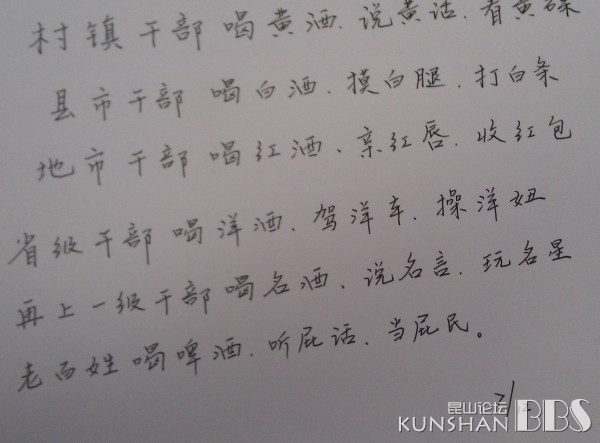 村镇干部 喝黄酒.说黄话.看黄碟
县市干部 喝白酒.摸白腿.打白条
地市干部 喝红酒、亲红唇.收红包
省级干部 喝洋酒.驾洋车.操洋妞
再上一级干部喝名酒、说名言.玩名星
老百姓喝啤酒.听屁话、当屁民。
昆山论坛
KUNSHAN BBS